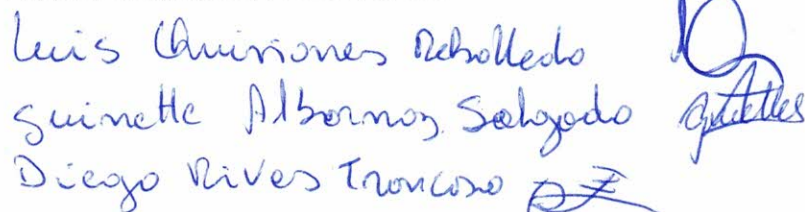 Luis Quiñones Rebolledo
Guinette Albornoz Salgado
Diego Rives Troncoso